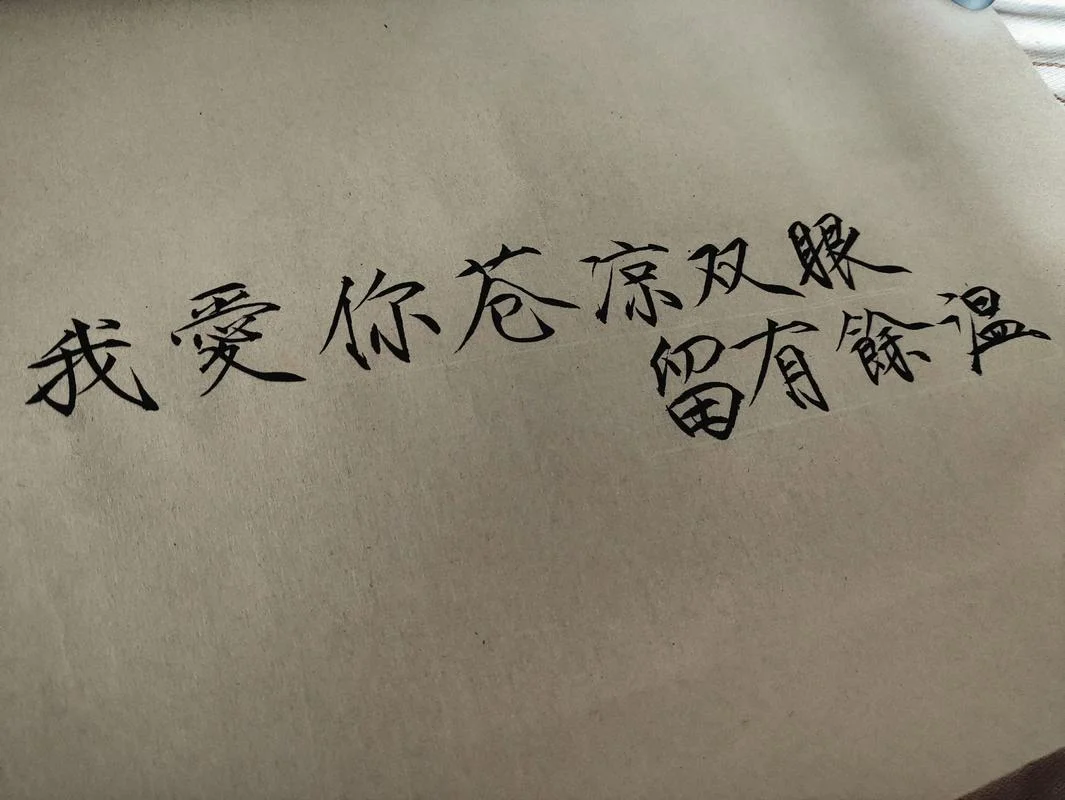 我愛你苍凉双眼
留有餘温